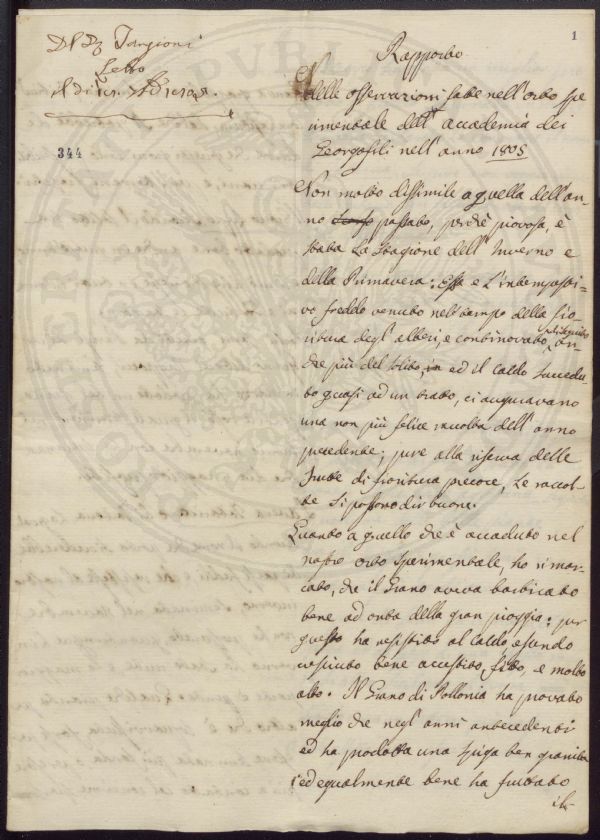 1
Del Dr. Targioni
Letto
il dì
344
Rapporto
delle osservazioni fatte nell'orto spe
rimentale dell'accademia dei
Georgofili nell'anno 1808
Non molto dissimile a quella dell'an=
no passato, perchè piovosa, è
stata la stagione dell'Inverno e
della Primavera: Essa e l'intempesti=
vo freddo venuto nel tempo della fio=
ritura degl'alberi, e continovato an=
che più del solito, ed il caldo succedu=
to quasi ad un tratto, ci aguravano
una non più felice raccolta dell'anno
precedente; pure alla riserva delle
frutte di fioritura precoce, le raccol=
te si possono dir buone.
Quanto a quello che è accaduto nel
nostro orto sperimentale, ho rimar=
cato, che il Grano aveva barbicato
bene ad onta della gran pioggia: per
questo ha resistito al caldo, essendo
cresciuto bene accestito, fitto, e molto
alto. Il Grano di Pollonia ha provato
meglio che negl'anni antecedenti
ed ha prodotta una spiga ben granita
ed egualmente bene ha fruttato
il